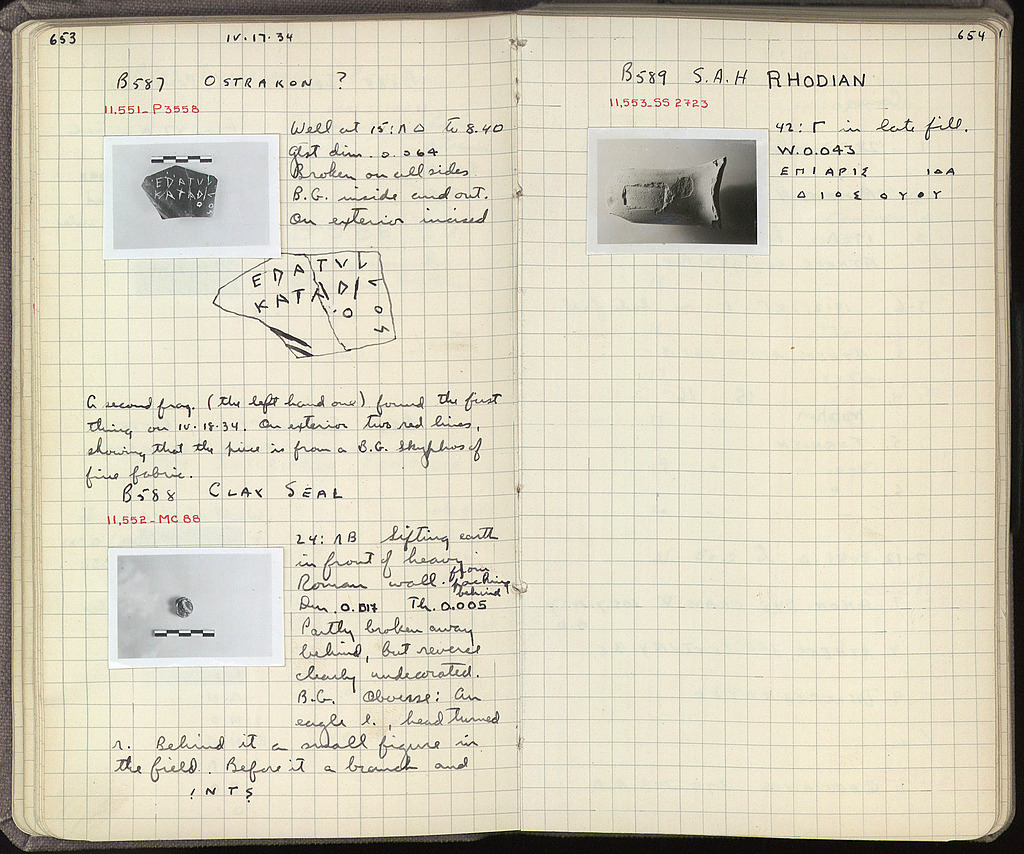 653
IV.17.34
B587 OSTRAKON ?
11,551-P3558
Well at 15:ΛΔ To 8.40
Gst dim. 0.064
Broken on all sides
B.G. inside and out.
On exterior incised
EDATVL
KATADI
O
A second frag. (the left hand one) found the first
thing on IV.18.34. On exterior two red lines,
showing that the piece is from a B.G. Skyphos of
fine fabric.
B588 CLAY SEAL
11,552-MC 88
24:ΛB Sifting earth
in front of heavy
Roman wall. from packing behind
Dm. 0.017 Th. 0.005
Partly broken away
behind, but reverse
clearly undecorated.
B.G. Obverse: An
eagle l., head turned
r. Behind it a small figure in
the field. Before it a branch and
! N T S
654
B589 S.A.H RHODIAN
11,553-SS 2723
42:Γ in late fill.
W.0.043
ΕΠΙΑΡΙΣ ΙΔΑ
ΔΙΟΣΟΥΟΥ